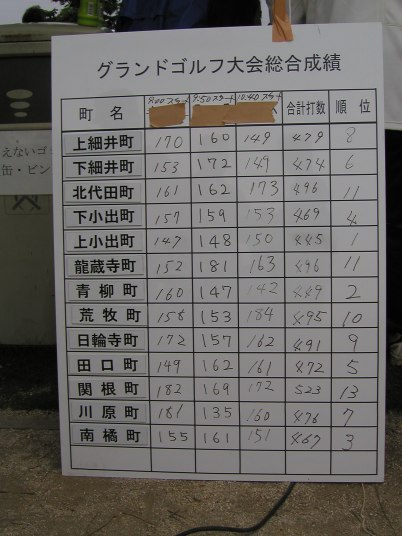 グランドゴルフ大会総合成績
町名 9:00スタート 9:50スタート 10:40スタート 合計打数 順位
上細井町 170 160 149 479 8
下細井町 153 172 149 474 6
北代田町 161 162 173 496 11
下小出町 157 159 153 469 4
上小出町 147 148 150 445 1
龍蔵寺町 152 181 163 496 11
青柳町 160 147 142 449 2
荒牧町 158 153 184 495 10
日輪寺町 172 157 162 491 9
田口町 149 162 161 472 5
関根町 182 169 172 523 13
川原町 181 135 160 476 7
南橘町 155 161 151 467 3
えないゴ
缶・ビン